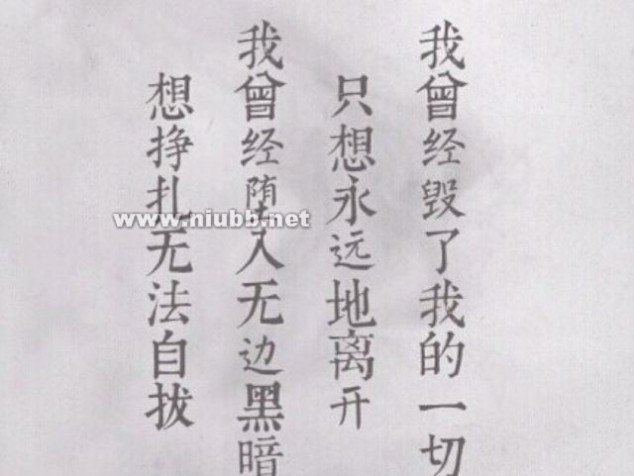 我曾经毁了我的一切
只想永远地离开
我曾经堕入无边黑暗
想挣扎无法自拔
www.niubb.net